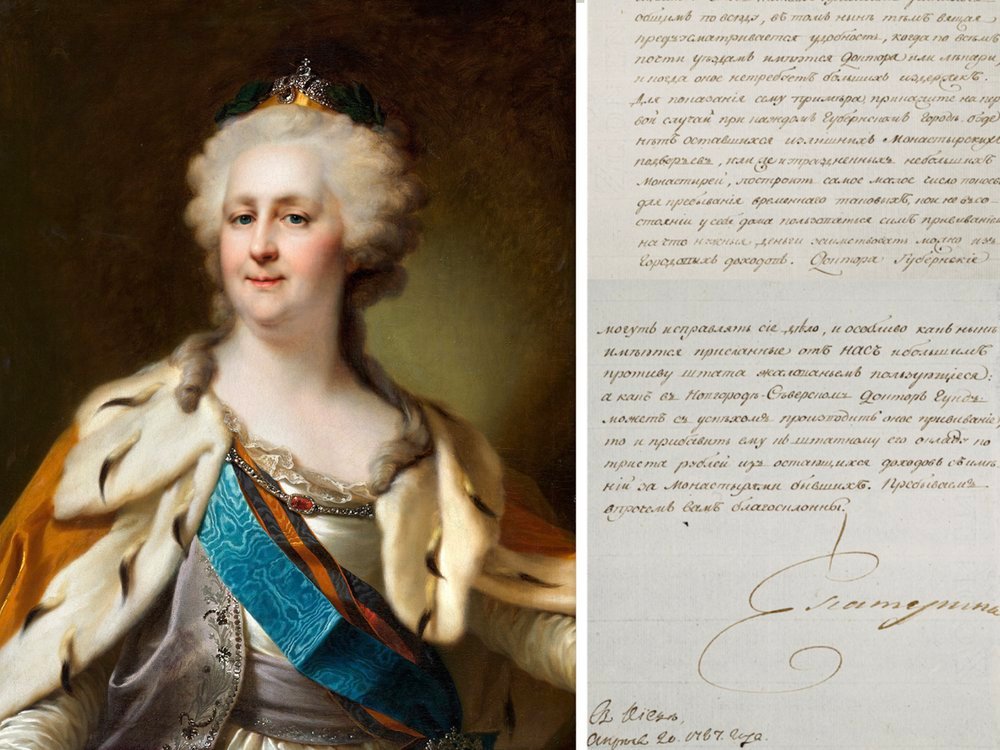 общимъ повсюду, въ томъ нынѣ тѣмъ вящая
предусматривается удобность, когда по всѣмъ
почти уѣздамъ имѣются Доктора или лѣкари,
и когда оное нетребуетъ большихъ издержекъ.
Для показанія сему примѣра, прикажите на пер
вой случай при каждомъ Губернскомъ Городѣ
изъ оставшихся излишнихъ Монастырскихъ
подворьевъ, или же изъ упраздненныхъ небольшихъ
Монастырей, построить самое малое число покоевъ
для пребыванія временнаго таковыхъ, кои не въ со
стояніи у себя дома пользоваться симъ прививаніемъ
на что нужныя деньги заимствовать можно изъ
Городскихъ доходовъ. Доктора Губернскіе
могутъ исправлять сіе дѣло, и особливо какъ нынѣ
имѣются присланные отъ НАСЪ и большимъ
противу штата жалованьемъ пользующіеся:
а какъ въ Новгородъ-Сѣверскомъ Докторъ Гундъ
можетъ съ успѣхомъ производить оное прививаніе,
то и прибавить ему къ штатному его окладу по
триста рублей изъ остающихся доходовъ съ имѣ
ній за Монастырями бывшихъ. Пребываемъ
впрочемъ вамъ благосклонны.
Екатерина
Въ Кіевѣ,
Апрѣля 20. 1787 года.